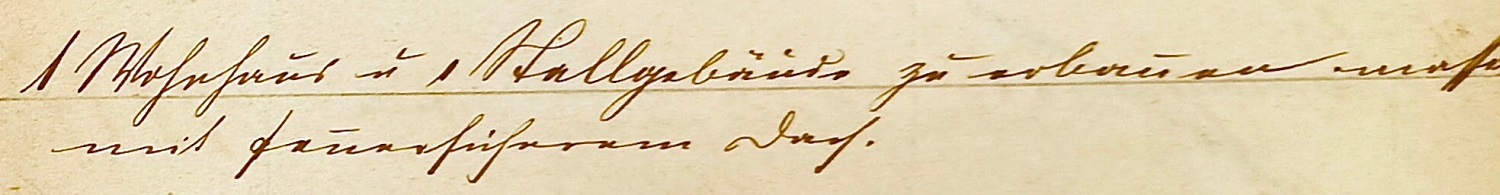 1 Wohnhaus u 1 Stallgebäude zu erbauen massi
mit feuersicherem Dach.